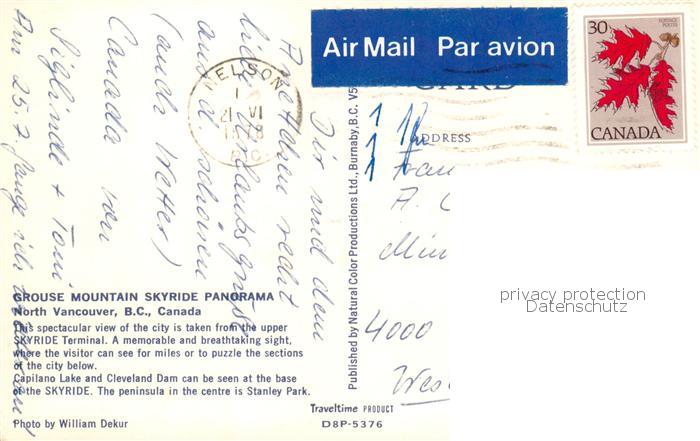 Air Mail Par avion
30
POSTAGE
POSTES
CANADA
CARD
ADDRESS
NELSON
21 VI
Dir und dem
Mädchen recht
liebe Urlaubsgrüße
aus d. schönen
(auch Wetter)
Canada von
Siglinde + Toni
Am 25.7. fange ich
4000
GROUSE MOUNTAIN SKYRIDE PANORAMA
North Vancouver, B.C., Canada
This spectacular view of the city is taken from the upper
SKYRIDE Terminal. A memorable and breathtaking sight,
where the visitor can see for miles or to puzzle the sections
of the city below.
Capilano Lake and Cleveland Dam can be seen at the base
of the SKYRIDE. The peninsula in the centre is Stanley Park.
Photo by William Dekur
Published by Natural Color Productions Ltd., Burnaby, B.C. V5
Traveltime PRODUCT
D8P-5376
privacy protection
Datenschutz